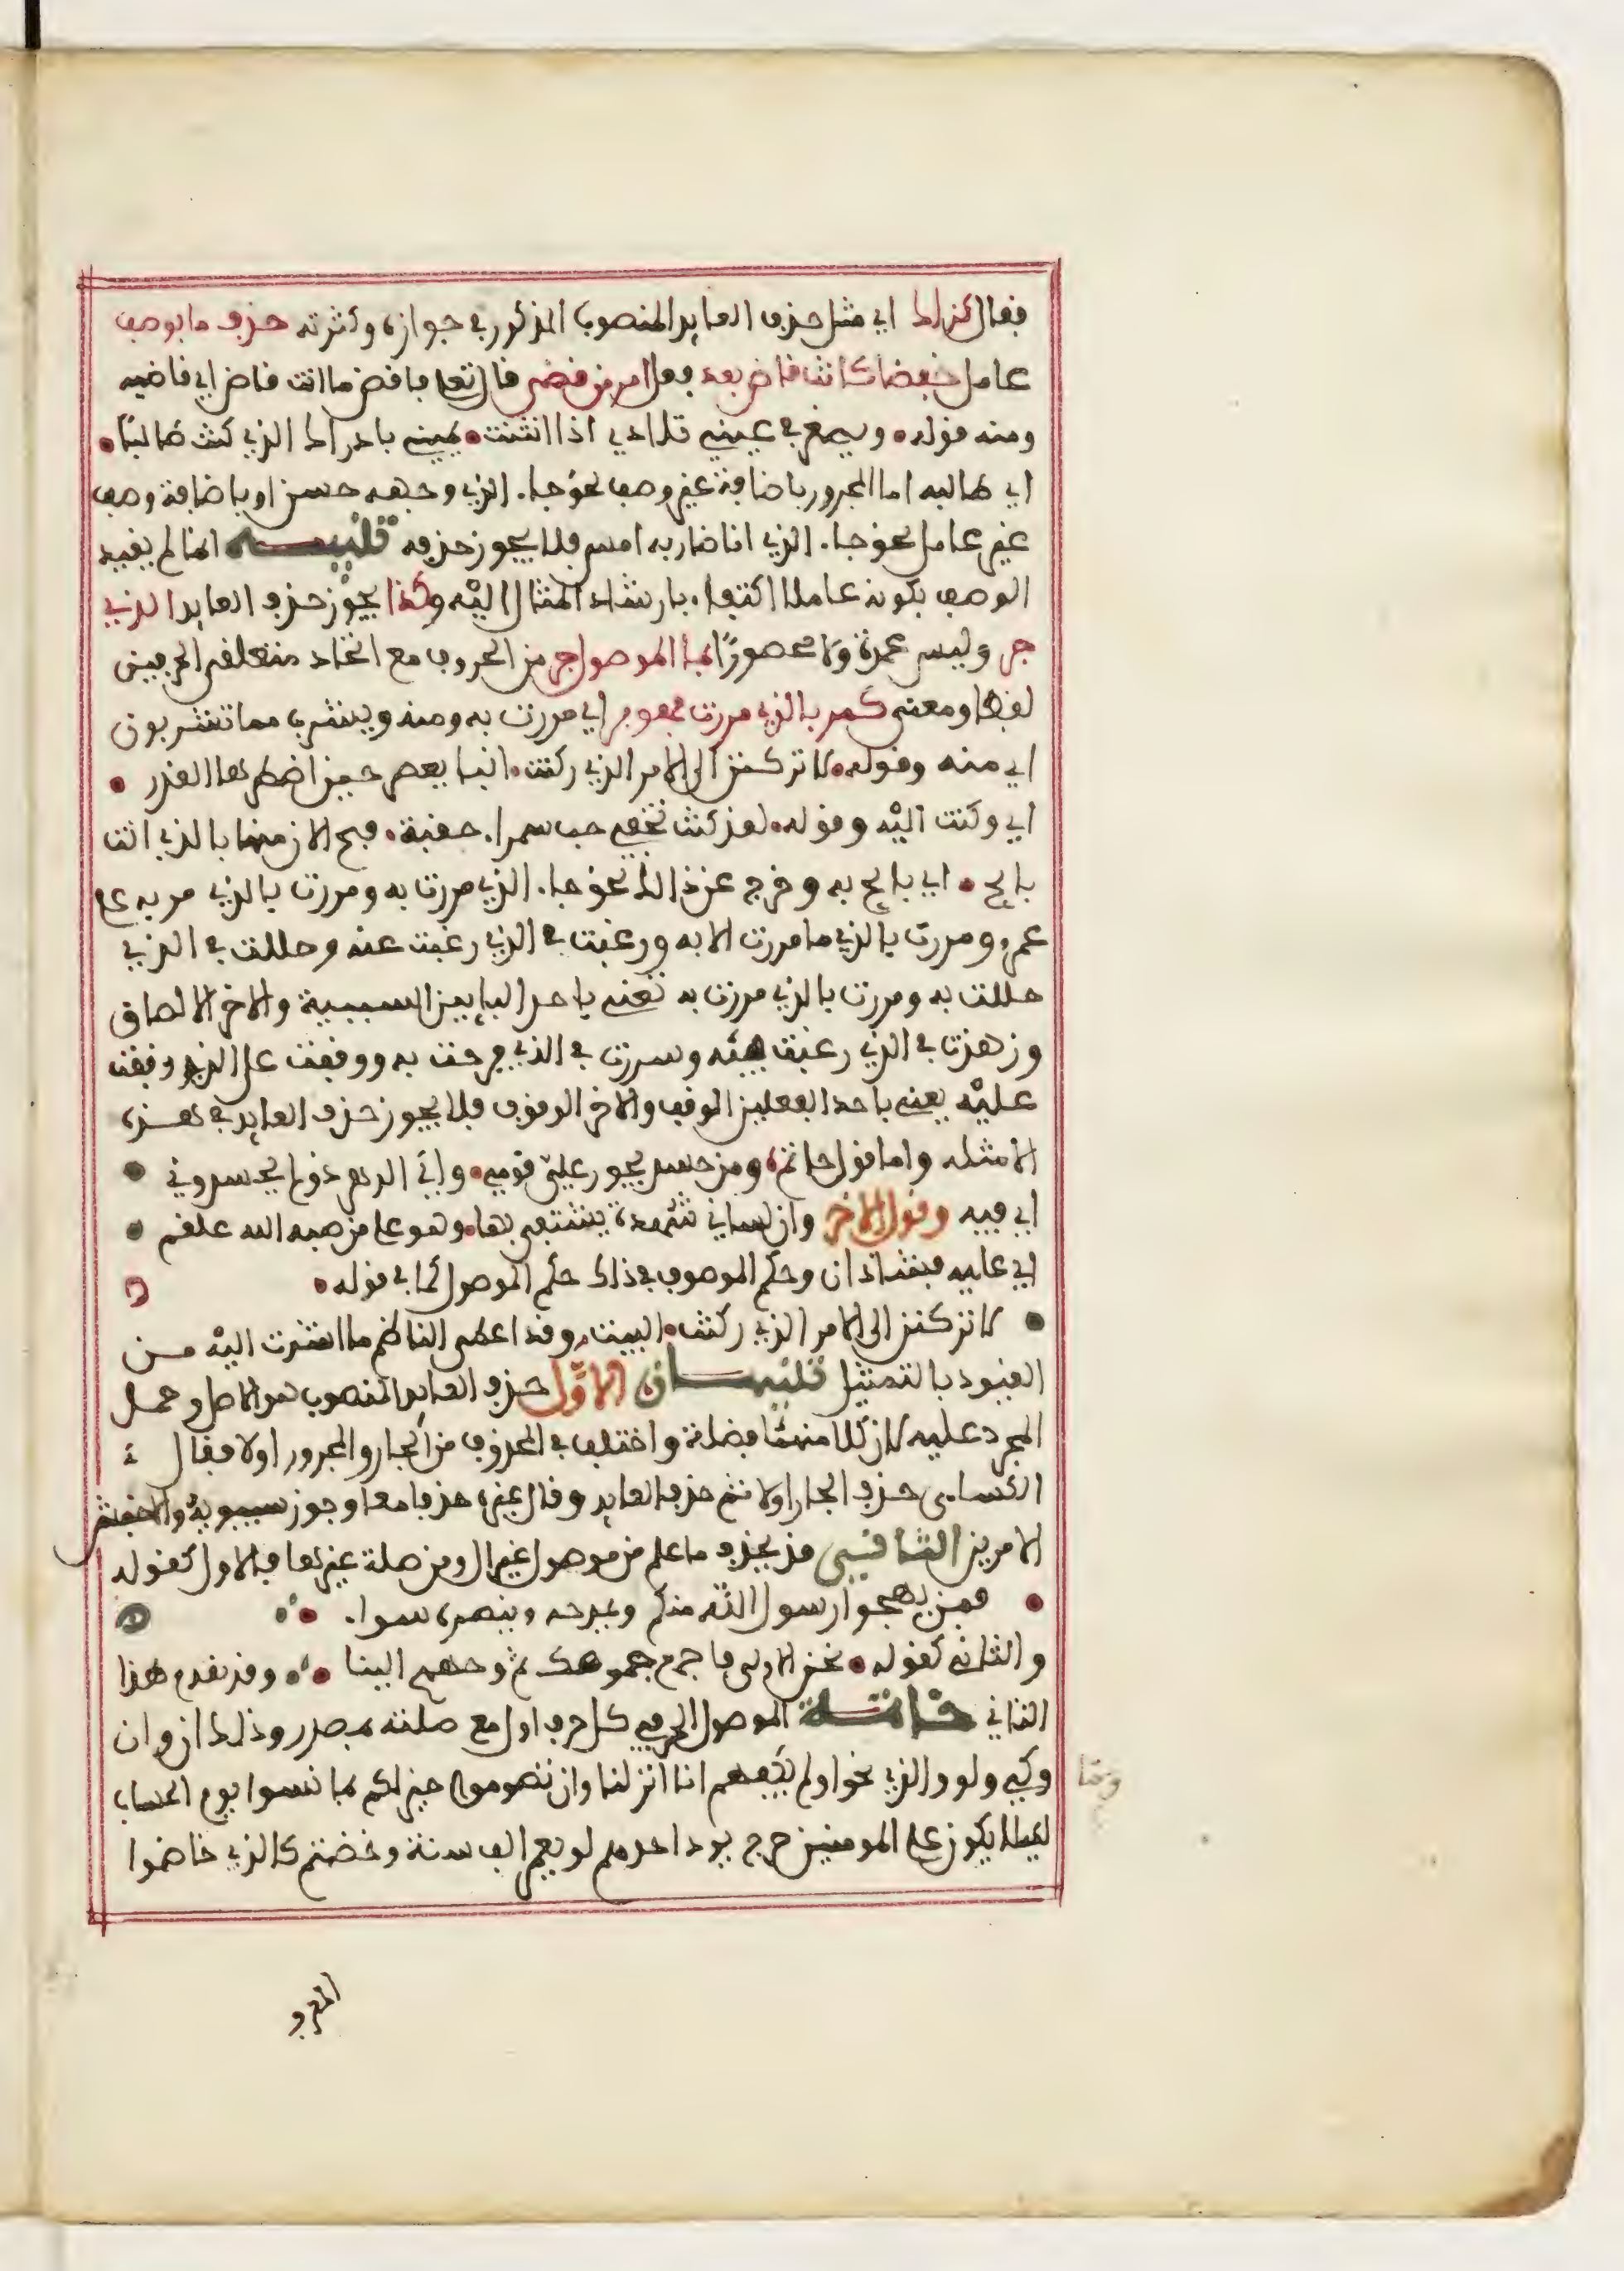 فقال كذاك اي مثل حذف العايد المنصوب المذكور في جوازه وكثرته حذف ما بوصف
عامل خفضا كانت قاض بعد فعل امر من قضى قال تعلى فاقض ما انت قاض اي قاضيه
ومنه قوله • ويصغر في عيني تلادي اذا انثنت • يميني بادراك الذي كنت طالبا •
اي طالبه اما المجرور باضافة غير وصف نحو جاء الذي وجهه حسن او باضافة وصف
غير عامل نحو جاء الذي انا ضاربه امس فلا يجوز حذفه تنبيه انما لم يقيد
الوصف بكونه عاملا اكتفاء بارشاد المثال اليه وكذا يجوز حذف العايد الذي
جر وليس عمدة ولا محصورا بما الموصول جر من الحروف مع اتحاد متعلقي الحرفين
لفظا ومعنى كمر بالذي مررت فهو بر اي مررت به ومنه ويشرب مما تشربون
اي منه وقوله • لا تركنن الى الامر الذي ركنت • ابناء يعصر حين اضطرها القدر •
اي ركنت اليه وقوله • لقد كنت تخفي حب سمراء حقبة • فبح لان منها بالذي انت
بايح • اي بايح به وخرج عن ذلك نحو جاء الذي مررت به ومررت بالذي مر به على
عمرو ومررت بالذي ما مررت الا به ورغبت في الذي رغبت عنه وحللت في الذي
حللت به ومررت بالذي مررت به تعني باحد البايين السببية والاخر الالصاق
وزهدت في الذي رغبت فيه وسررت في الذي فرحت به ووقفت على الذي وقفت
عليه يعني باحد الفعلين الوقف والاخر الوقوف فلا يجوز حذف العايد في هذه
الامثلة واما قول حاتم • ومن حسد يجور علي قومي • واي الدهر ذو لم يحسدوني •
اي فيه وقول الاخر وان لساني شهدة يشتفى بها • وهو على من صبه الله علقم •
اي عليه فشاذان وحكم الموصوف في ذلك حكم الموصول كما في قوله •
• لا تركنن الى الامر الذي ركنت • البيت وقد اعطى الناظم ما اشرت اليه من
القيود بالتمثيل تنبيهان الاول حذف العايد المنصوب هو الاصل وحمل
المجرور عليه لان كلا منهما فضلة واختلف في المحذوف من الجار والمجرور اولا فقال
الكساءي حذف الجار اولا ثم حذف العايد وقال غيره حذفا معا وجوز سيبويه والاخفش
الامرين الثاني قد يحذف ما علم من موصول غير ال ومن صلة غيرها فالاول كقوله
• فمن يهجوا رسول الله منكم ويمدحه وينصره سواء •
والثاني كقوله • نحن الاولى فاجمع جموعك ثم وجههم الينا • وقد تقدم هذا
الثاني خاتمة الموصول الحرفي كل حرف اول مع صلته بمصدر وذلك ان وان
وكي ولو والذي نحو اولم يكفهم انا انزلنا وان تصوموا خير لكم بما نسوا يوم الحساب
لكيلا يكون على المومنين حرج يود احدهم لو يعمر الف سنة وخضتم كالذي خاضوا
وما